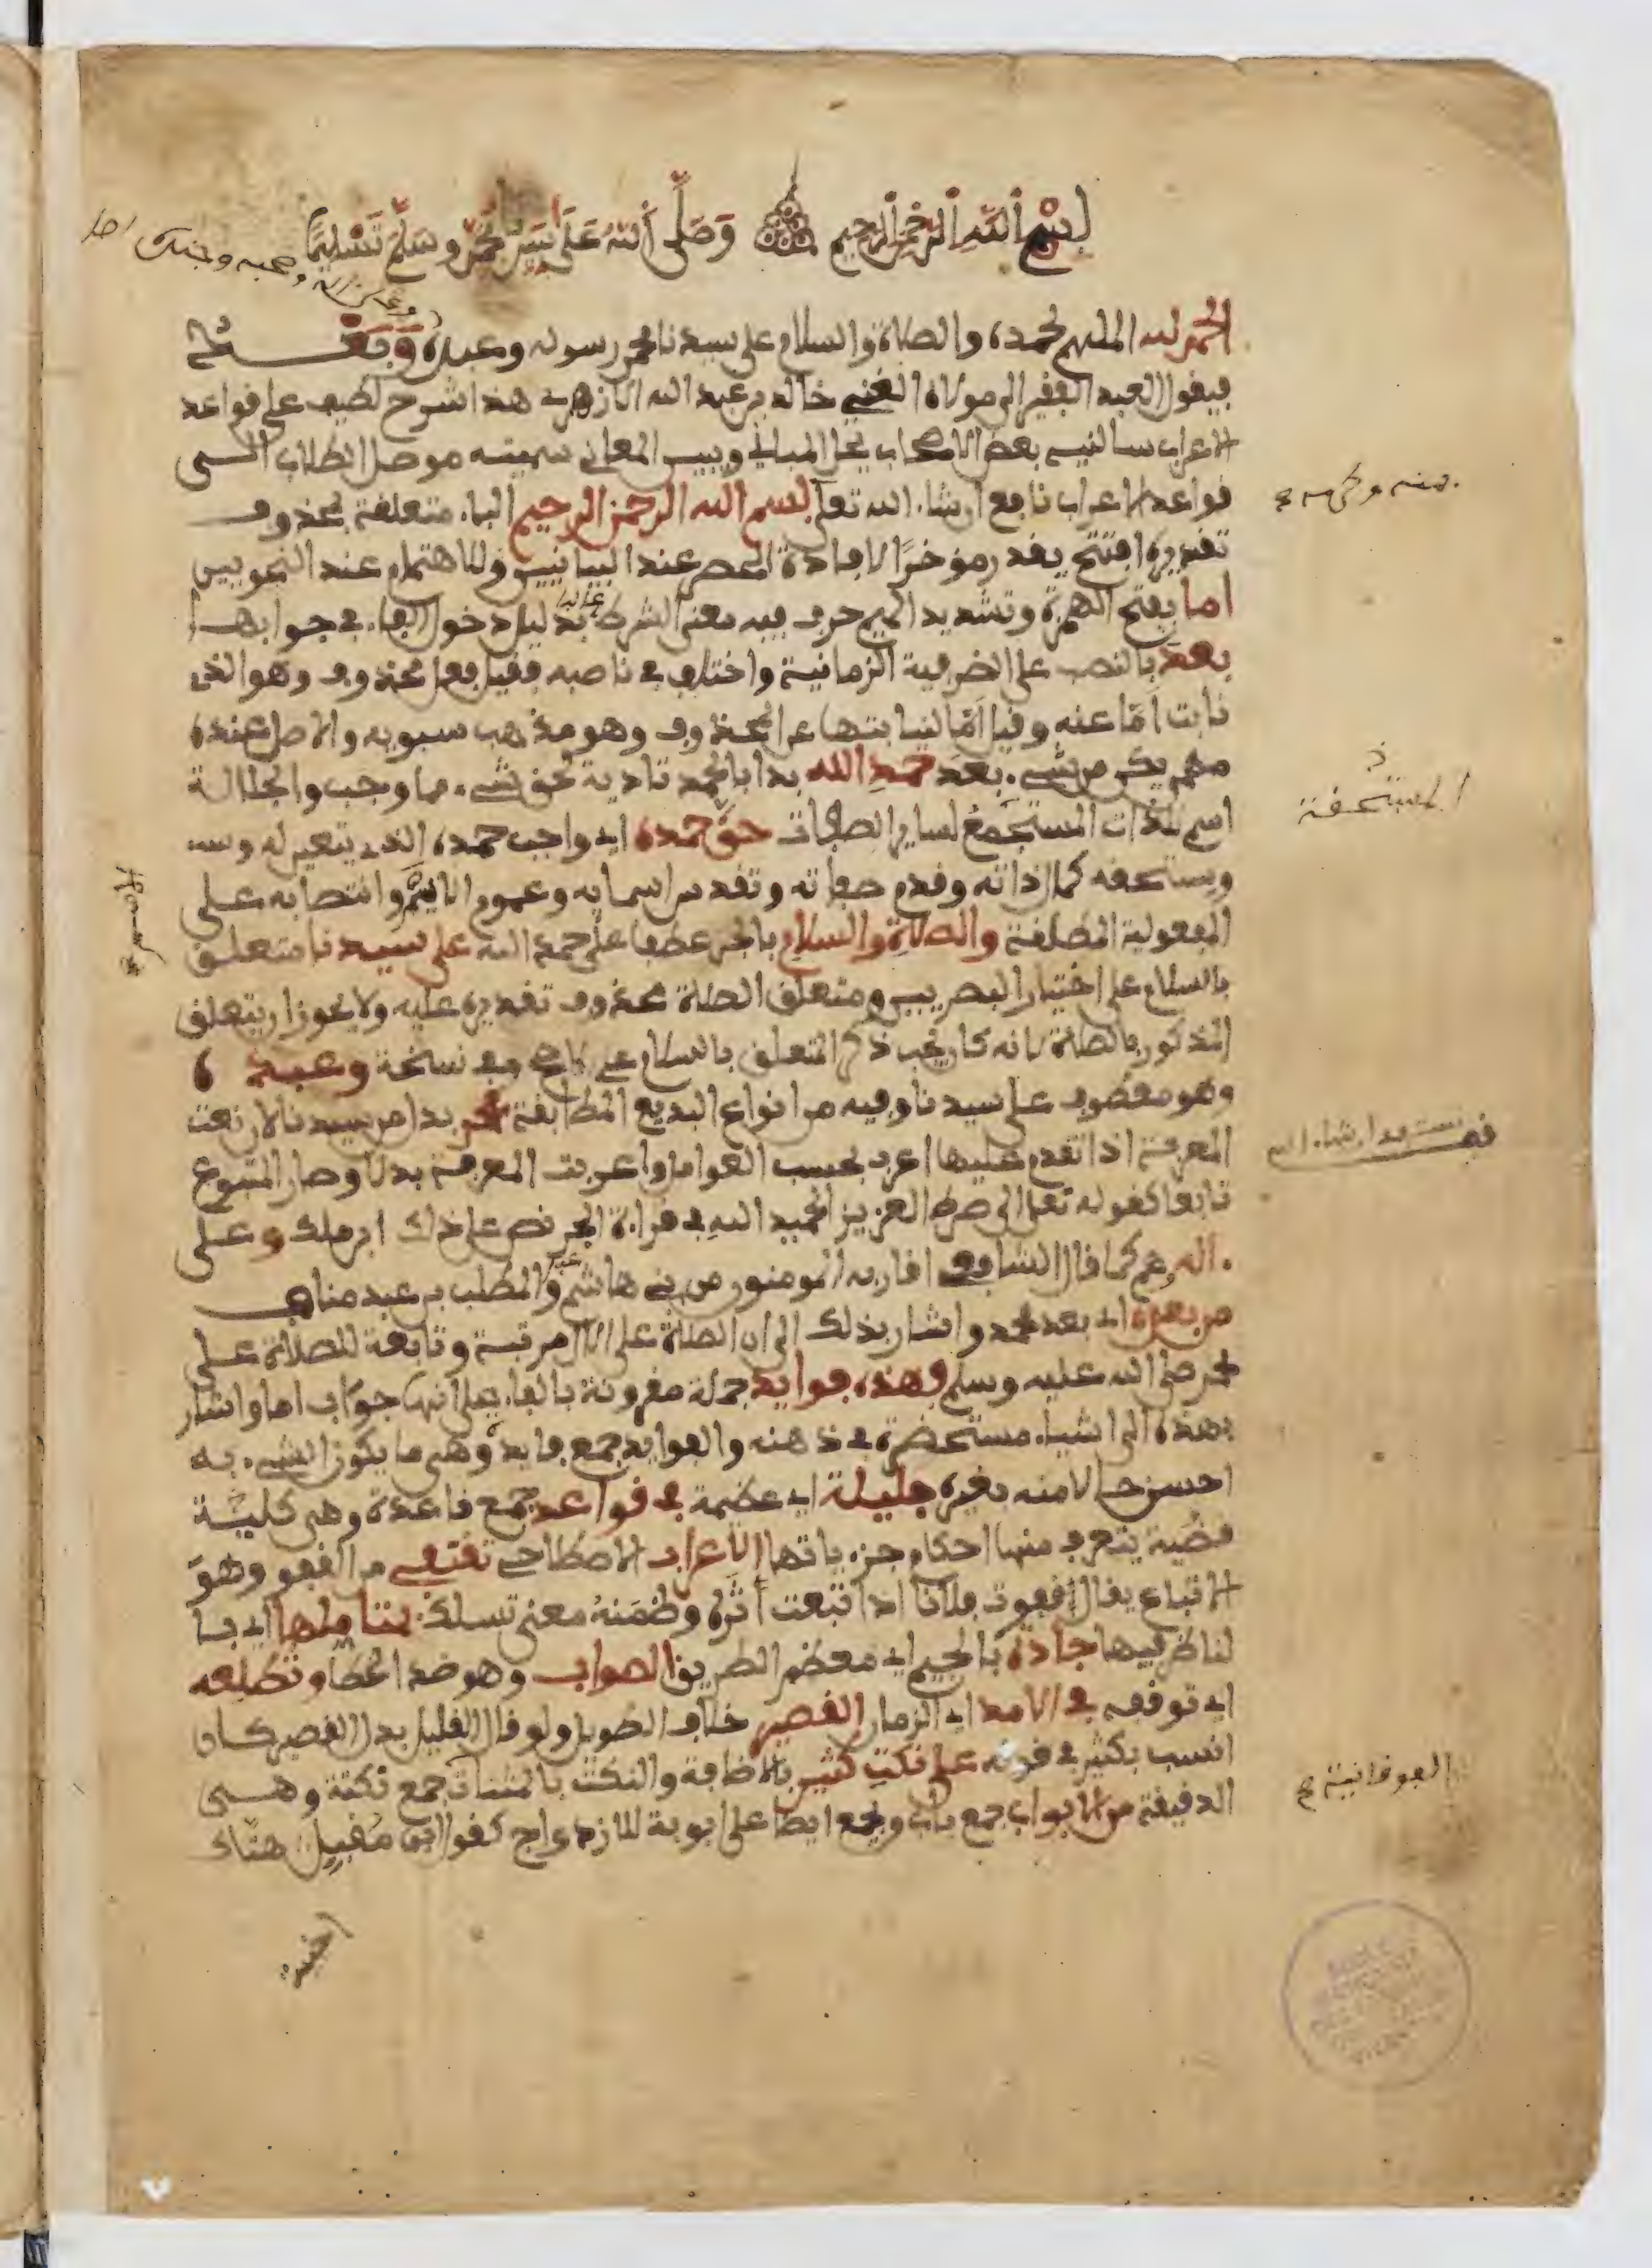 بسم الله الرحمن الرحيم وصلى الله على سيدنا محمد وسلم تسليما
وعلى اله وصحبه
الحمد لله الملهم لحمده والصلاة والسلام على سيدنا محمد رسوله وعبده وبعد
فيقول العبد الفقير الى مولاه الغني خالد بن عبد الله الازهري هذا شرح لطيف على قواعد
الاعراب سالنيه بعض الاصحاب يحل المباني ويبين المعاني سميته موصل الطلاب الى
قواعد الاعراب نافع ان شاء الله تعلى بسم الله الرحمن الرحيم الباء متعلقة بمحذوف
تقديره افتتح يقدر مؤخرا لافادة الحصر عند البيانيين وللاهتمام عند النحويين
اما بفتح الهمزة وتشديد الميم حرف فيه معنى الشرط بدليل دخول الفاء في جوابها
غالبا
بعد بالنصب على الظرفية الزمانية واختلف في ناصبه فقيل فعل محذوف وهو الذي
نابت اما عنه وقيل اما لنيابتها عن المحذوف وهو مذهب سبويه والاصل عنده
مهما يكن من شيء بعد حمد الله بدا بالحمد تادية لحق شيء مما وجب والجلالة
اسم للذات المستجمع لساير الصفات حق حمده اي واجب حمده الذي يتعين له
ويستحقه كمال ذاته وقدم صفاته وتقدس اسمايه وعموم الايه وانتصابه على
المفعولية المطلقة والصلاة والسلام بالجر عطفا على حمد الله على سيدنا متعلق
بالسلام على اختيار البصريين ومتعلق الصلاة محذوف تقديره عليه ولا يجوز ان يتعلق
المذكور بالصلاة لانه كان يجب ذكر المتعلق بالسلام على الاصح وفي نسخة وعبده
وهو معطوف على سيدنا وفيه من انواع البديع المطابقة محمد بدل من سيدنا لان نعت
المعرفة اذا تقدم عليها اعرب بحسب العوامل واعربت المعرفة بدلا وصار المتبوع
تابعا كقوله تعالى الى صراط العزيز الحميد الله في قراءة الجر نص على ذلك ابن ملك وعلى
اله وهم كما قال الشافعي اقاربه المومنون من بني هاشم والمطلب بن عبد مناف
من بعده اي بعد محمد واشار بذلك الى ان الصلاة على الال مرتبة وتابعة للصلاة على
محمد صلى الله عليه وسلم وهذه فوايد جملة مقرونة بالفاء على انها جواب اما واشار
بهذه الى اشياء مستحضرة في ذهنه والفوايد جمع فايدة وهي ما يكون الشيء به
احسن حالا منه بغيره جليلة اي عظيمة في قواعد جمع قاعدة وهي كلية
قضية يتعرف منها احكام جزءياتها الاعراب الاصطلاحي تقتفي من القفو وهو
الاتباع يقال قفوت فلانا اذا تبعت اثره وضمنه معنى تسلك بمتاملها اي با
لناظر فيها جادة بالجيم اي معظم الطريق الصواب وهو ضد الخطا وتطلعه
اي توقفه في الامد اي الزمان القصير خلاف الطويل ولو قال القليل بدل القصير كان
انسب بكثير في قوله على نكت كثير بالاضافة والنكت بالمثناة جمع نكتة وهي
الدقيقة من الابواب جمع باب ويجمع ايضا على ابوبة للازدواج كقول ابن مقبل هتاك
اخبية
المستحقة
ان شاء الله
الفوقانية